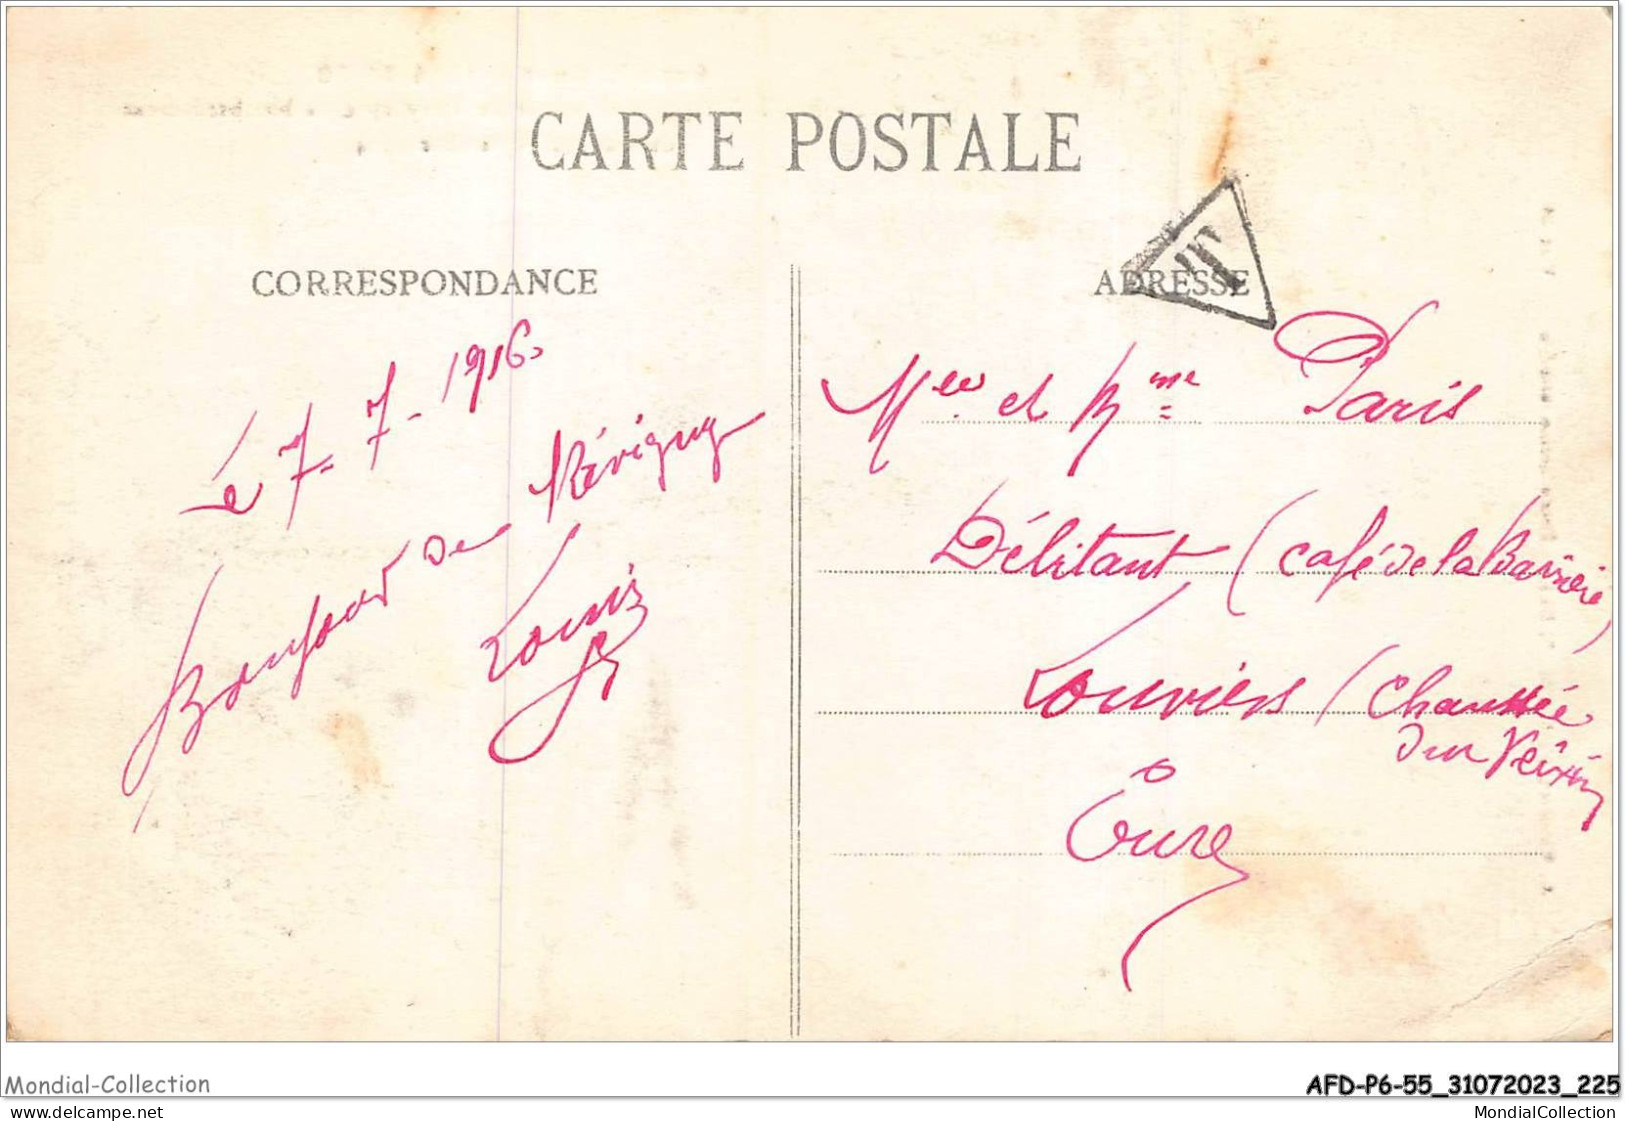 CARTE POSTALE
CORRESPONDANCE
Le 7-7-1916
Bonjour de Révigny
Louis
ADRESSE
T
Mee et Mme Paris
Débitant, (café de la Barrière)
Louviers (Chaussée
du Vexin
Eure
Mondial-Collection
AFD-P6-55_31072023_225
© delcampe.net
MondialCollection